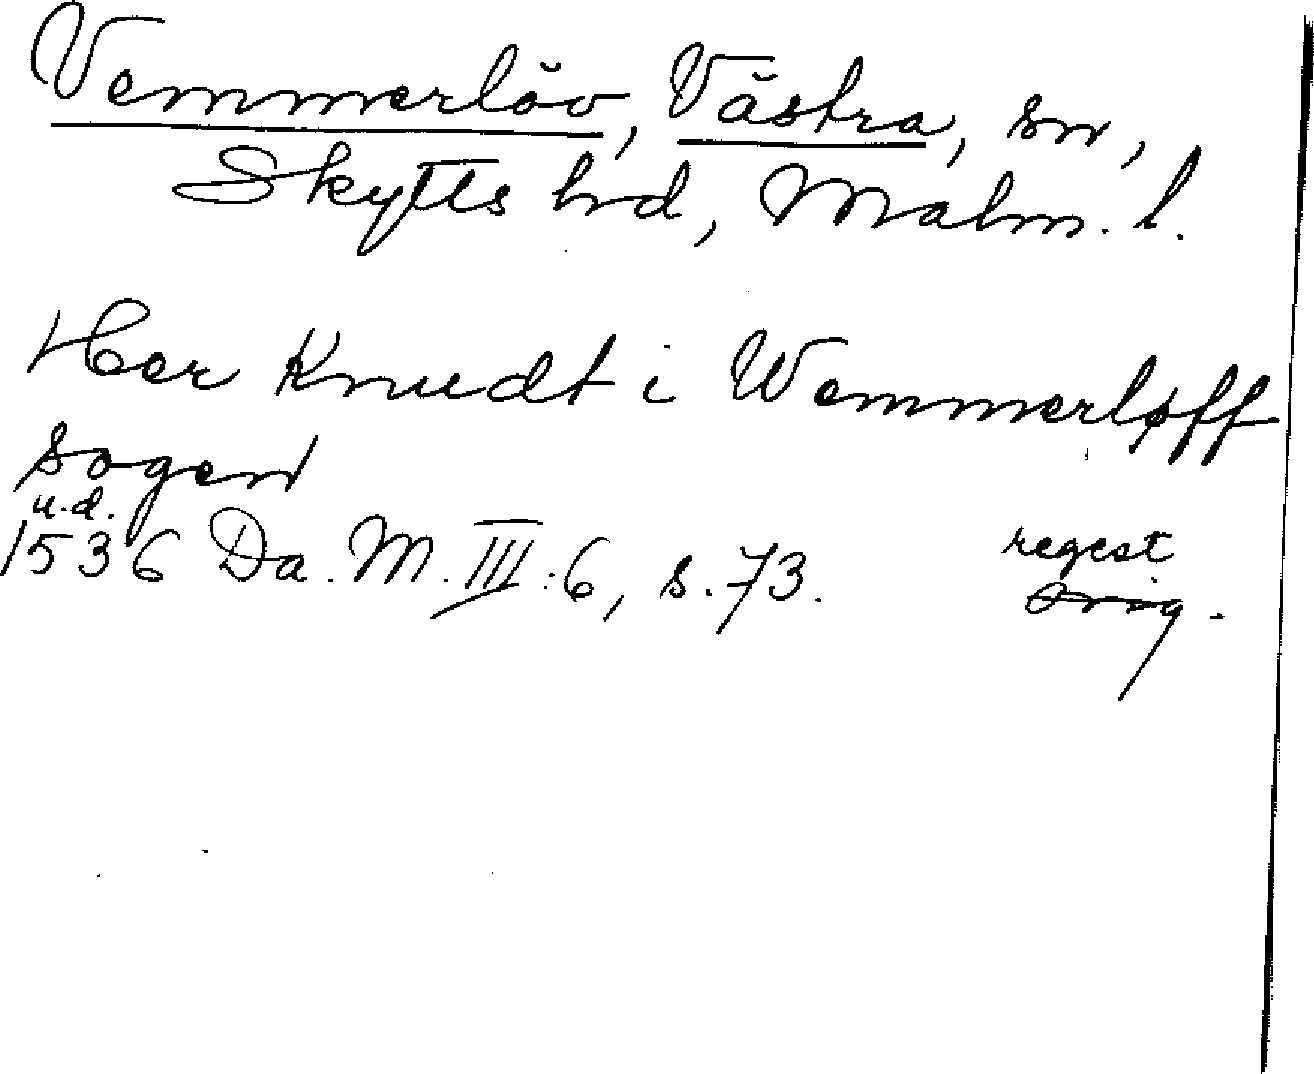 Vemmerlöv, Västra, sn,
Skytts hd, Malm. l.
Her Knudt i Wemmerløff
sogen
u.d.
1536 Da. M. III:6, s. 73.
regest
orig.